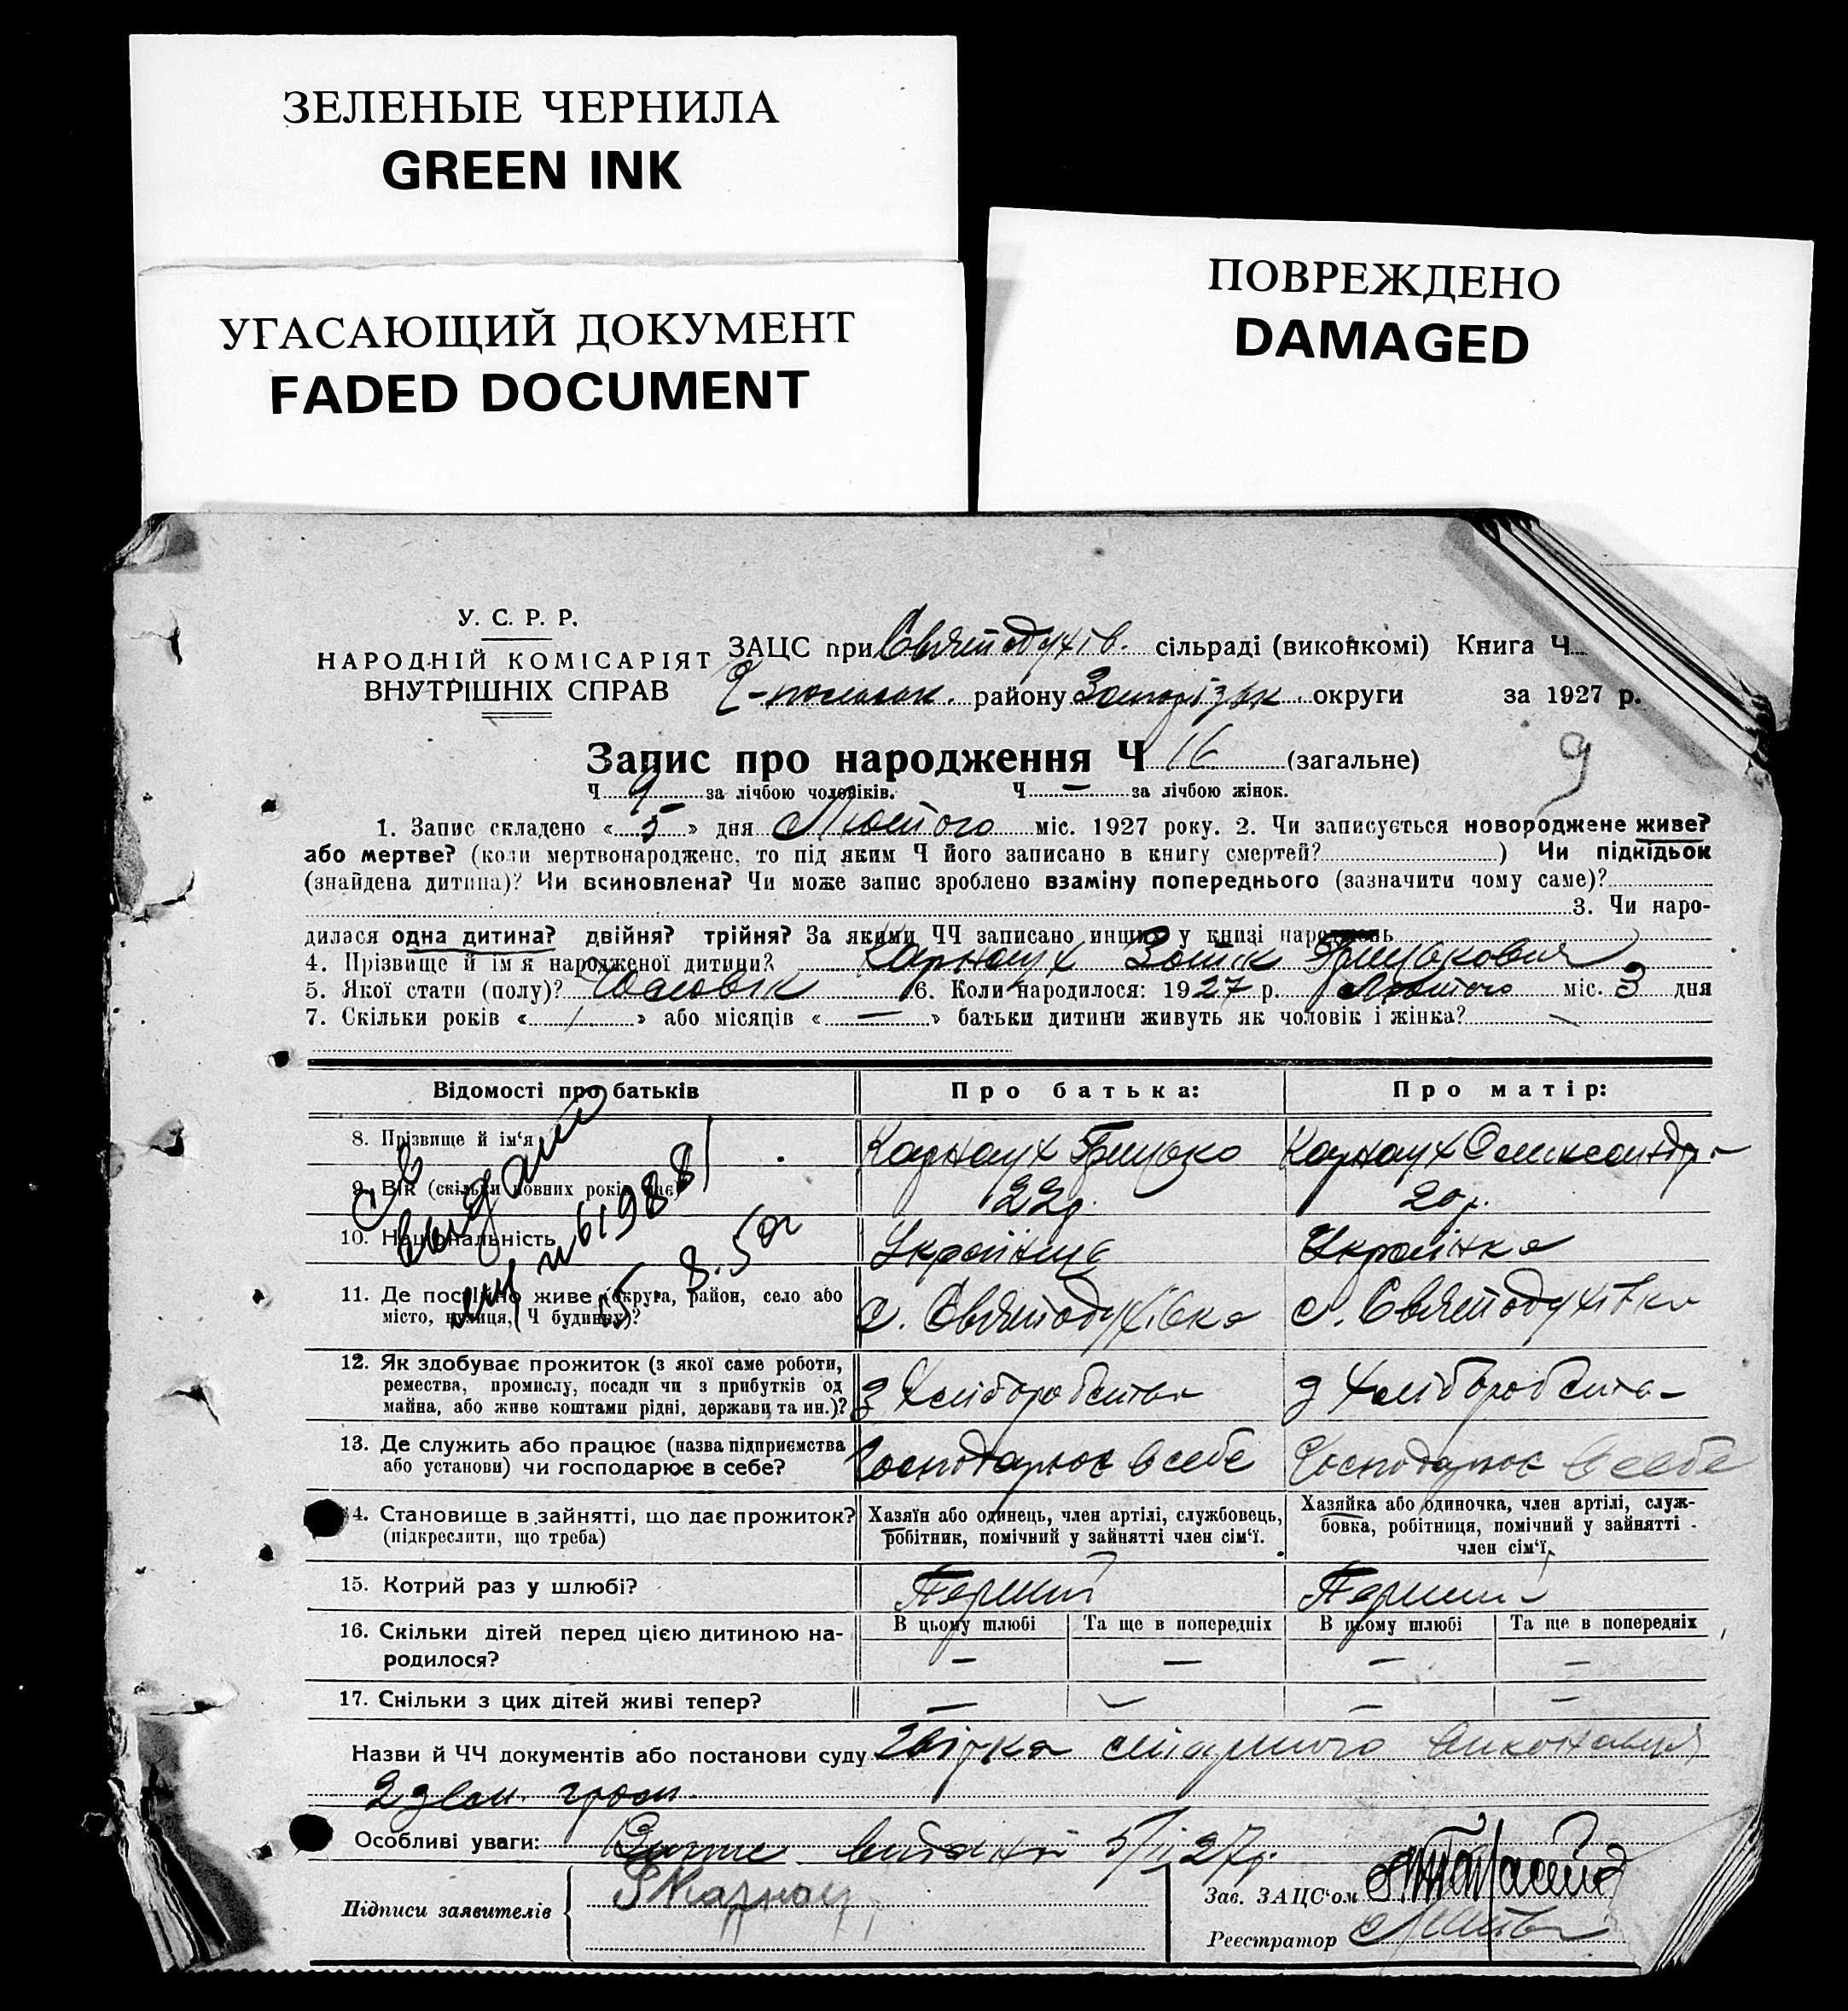 ЗЕЛЕНЫЕ ЧЕРНИЛА
GREEN INK
УГАСАЮЩИЙ ДОКУМЕНТ
FADED DOCUMENT
ПОВРЕЖДЕНО
DAMAGED
У. С. Р. Р.
НАРОДНІЙ КОМІСАРІЯТ
ВНУТРІШНІХ СПРАВ
ЗАЦС при Святодухів. сільраді (виконкомі) Книга Ч.
району Запорізьк. округи за 1927 р.
Запис про народження Ч 16 (загальне)
9
Ч 9 за лічбою чоловіків. Ч — за лічбою жінок.
1. Запис складено « 5 » дня Лютого міс. 1927 року. 2. Чи записується новороджене живе?
або мертве? (коли мертвонароджене, то під яким Ч його записано в книгу смертей? ) Чи підкідьок
(знайдена дитина)? Чи всиновлена? Чи може запис зроблено взаміну попереднього (зазначити чому саме)?
3. Чи наро-
дилася одна дитина? двійня? трійня? За якими ЧЧ записано инших у книзі народжень
4. Прізвище й ім'я народженої дитини? Карнаух Грицькович
5. Якої стати (полу)? Чоловік 6. Коли народилося: 1927 р. Лютого міс. 3 дня
7. Скільки років « / » або місяців « — » батьки дитини живуть як чоловік і жінка?
Відомості про батьків Про батька: Про матір:
8. Прізвище й ім'я Карнаух Грицько Карнаух Олександра
9. Вік (скільки повних років має) 22 р. 20 р.
10. Національність Українець Українка
11. Де постійно живе (округа, район, село або
місто, вулиця, Ч будинку)? с. Святодухівка с. Святодухівка
12. Як здобуває прожиток (з якої саме роботи,
ремества, промислу, посади чи з прибутків од
майна, або живе коштами рідні, держави та ин.)? З Хліборобства З Хліборобства
13. Де служить або працює (назва підприємства
або установи) чи господарює в себе? Господарює в себе Господарює в себе
14. Становище в зайнятті, що дає прожиток?
(підкреслити, що треба)
Хазяїн або одинець, член артілі, службовець,
робітник, помічний у зайнятті член сім'ї.
Хазяйка або одиночка, член артілі, служ-
бовка, робітниця, помічний у зайнятті
член сім'ї.
15. Котрий раз у шлюбі? Перший Перший
В цьому шлюбі Та ще в попередніх В цьому шлюбі Та ще в попередніх
16. Скільки дітей перед цією дитиною на-
родилося? — — — —
17. Скільки з цих дітей живі тепер? — — — —
Назви й ЧЧ документів або постанови суду
Особливі уваги: видано 5/II 27 р.
Підписи заявителів Карнаух
Зав. ЗАЦС'ом
Реєстратор